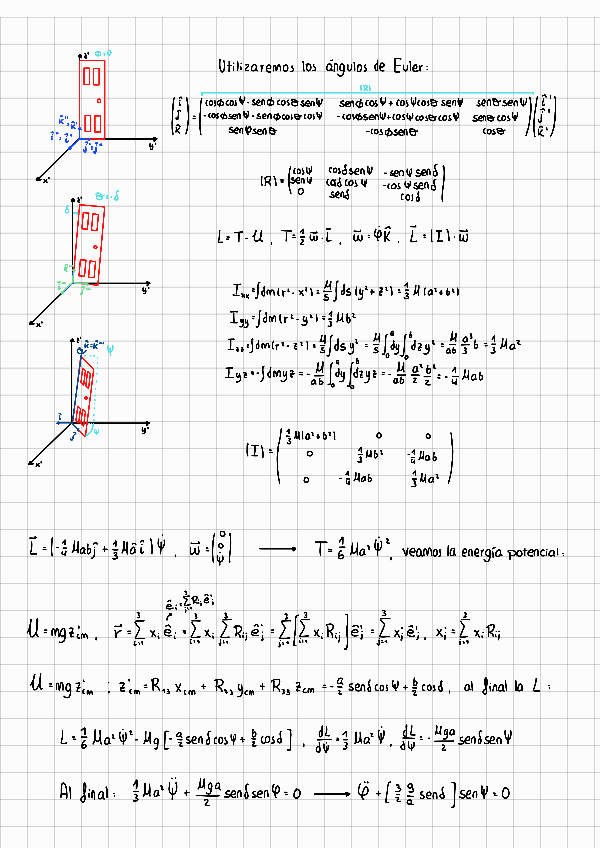 Utilizaremos los ángulos de Euler:
z' Φ=0
k''=k' i''=i' j''=j' y' x'
(R)
(î ĵ k̂) = (cosφcosψ - senφcosθsenψ senφcosψ + cosψcosθsenψ senθsenψ
-cosφsenψ - senφcosθcosψ -cosφsenψ + cosψcosθcosψ senθcosψ
senψsenθ -cosφsenθ cosθ) (î' ĵ' k̂')
(R) = (cosψ cosδsenψ -senψsenδ
senψ cosδcosψ -cosψsenδ
0 senδ cosδ)
z' θ=-δ
δ y' x'
L = T - U , T = 1/2 w⃗·L⃗ , w⃗ = φ̇ k̂ , L⃗ = (I)·w⃗
Ixx = ∫dm(r²-x²) = M/S ∫ds(y²+z²) = 1/3 M(a²+b²)
Iyy = ∫dm(r²-y²) = 1/3 Mb²
Izz = ∫dm(r²-z²) = M/S ∫ds y² = M/S ∫₀ᵃdy∫₀ᵇdz y² = M/ab a³/3 b = 1/3 Ma²
Iyz = -∫dmyz = -M/ab ∫₀ᵃdy∫₀ᵇdzyz = -M/ab a²/2 b²/2 = -1/4 Mab
z' k̂=k̂'' ψ
î ĵ ψ y' x'
(I) = (1/3 M(a²+b²) 0 0
0 1/3 Mb² -1/4 Mab
0 -1/4 Mab 1/3 Ma²)
L⃗ = (-1/4 Mab ĵ + 1/3 Ma² î) ψ̇ , w⃗ = (0 0 ψ̇) → T = 1/6 Ma² ψ̇² , veamos la energía potencial:
êi = Σ³j=1 Rij ê'j
U = mgz'cm , r⃗ = Σ³i=1 xi êi = Σ³i=1 xi Σ³j=1 Rij ê'j = Σ³j=1 [Σ³i=1 xi Rij] ê'j = Σ³j=1 x'j ê'j , x'j = Σ³i=1 xi Rij
U = mgz'cm ; z'cm = R13 xcm + R23 ycm + R33 zcm = -a/2 senδcosψ + b/2 cosδ , al final la L:
L = 1/6 Ma² ψ̇² - Mg[-a/2 senδcosψ + b/2 cosδ] , dL/dψ̇ = 1/3 Ma² ψ̇ , dL/dψ = -Mga/2 senδsenψ
Al final: 1/3 Ma² ψ̈ + Mga/2 senδsenφ = 0 → φ̈ + [3/2 g/a senδ] senψ = 0